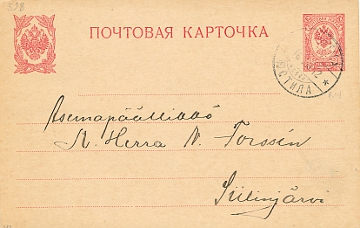 578
ПОЧТОВАЯ КАРТОЧКА
Asemapäällikkö
A. Herra N. Forssin
Siilinjärvi